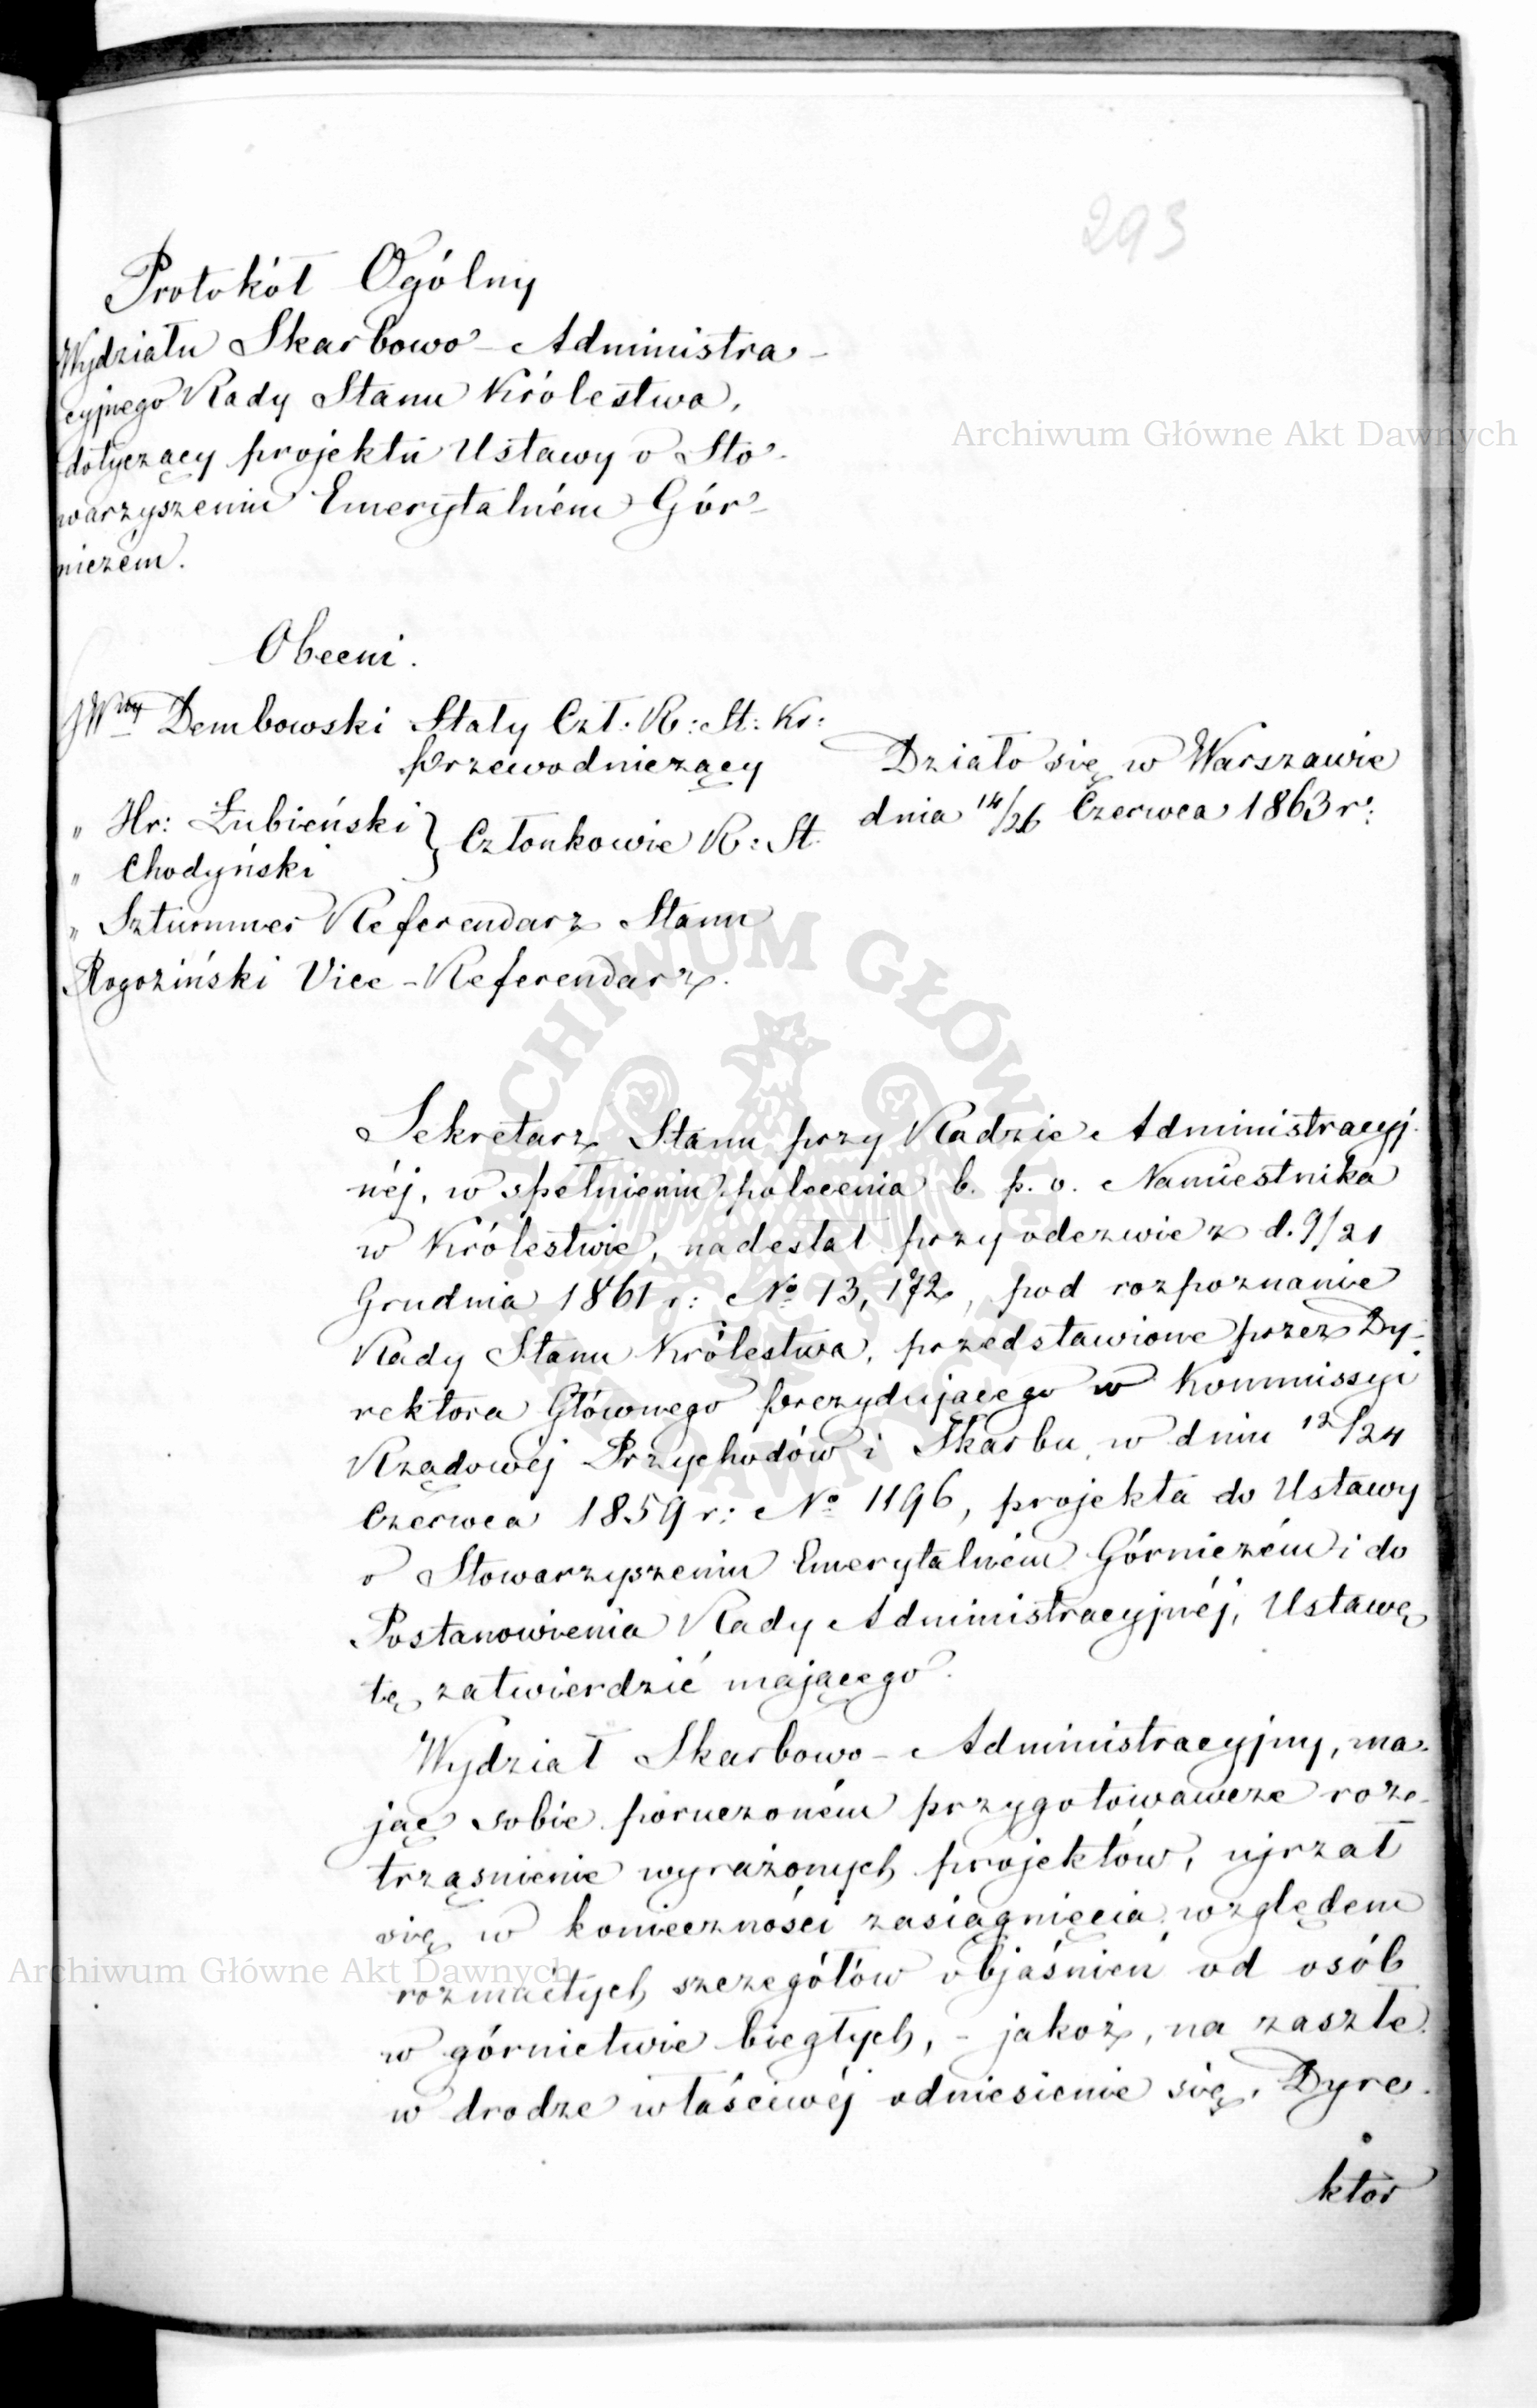 293
Protokół Ogólny
Wydziału Skarbowo-Administra-
cyjnego Rady Stanu Królestwa,
dotyczący projektu Ustawy o Sto-
warzyszeniu Emerytalném Gór-
niczém.
Archiwum Główne Akt Dawnych
Obecni.
JW Dembowski Stały Czł. R: St: Kr:
przewodniczący
" Hr: Łubieński } Członkowie R: St.
" Chodyński
" Szturmmer Referendarz Stanu
Rogoziński Vice-Referendarz.
Działo się w Warszawie
dnia 14/26 Czerwca 1863 r:
Sekretarz Stanu przy Radzie Administracyj-
néj, w spełnieniu polecenia b. p. o. Namiestnika
w Królestwie, nadesłał przy odezwie z d. 9/21
Grudnia 1861 r: No 13,172, pod rozpoznanie
Rady Stanu Królestwa, przedstawione przez Dy-
rektora Głównego prezydującego w Kommissyi
Rządowéj Przychodów i Skarbu, w dniu 12/24
Czerwca 1859 r: No 1196, projekta do Ustawy
o Stowarzyszeniu Emerytalném Górniczém i do
Postanowienia Rady Administracyjnéj, Ustawę
tę zatwierdzić mającego.
Wydział Skarbowo-Administracyjny, ma-
jąc sobie poruczoném przygotowawcze roze-
trząśnienie wyrażonych projektów, ujrzał
się w konieczności zasiągnięcia względem
rozmaitych szczegółów objaśnień od osób
w górnictwie biegłych, - jakoż, na zaszłe
w drodze właściwéj odniesienie się, Dyre-
ktor
Archiwum Główne Akt Dawnych
ARCHIWUM GŁÓWNE AKT DAWNYCH